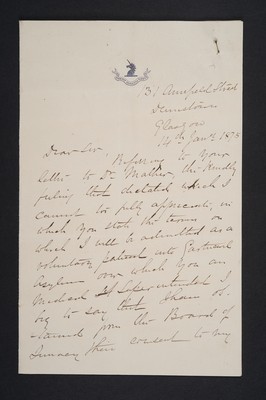 31 Annfield Street
Dennistoun
Glasgow
14th Jany 1875
Dear Sir,
Referring to your
letter to Dr Mather, the kindly
feeling that dictated which I
cannot too fully appreciate, in
which you state the terms on
which I will be admitted as a
voluntary patient into Gartnavel
Asylum over which you are
Medical Superintendent I
beg to say that I have ob-
tained from the Board of
Lunacy their consent to my